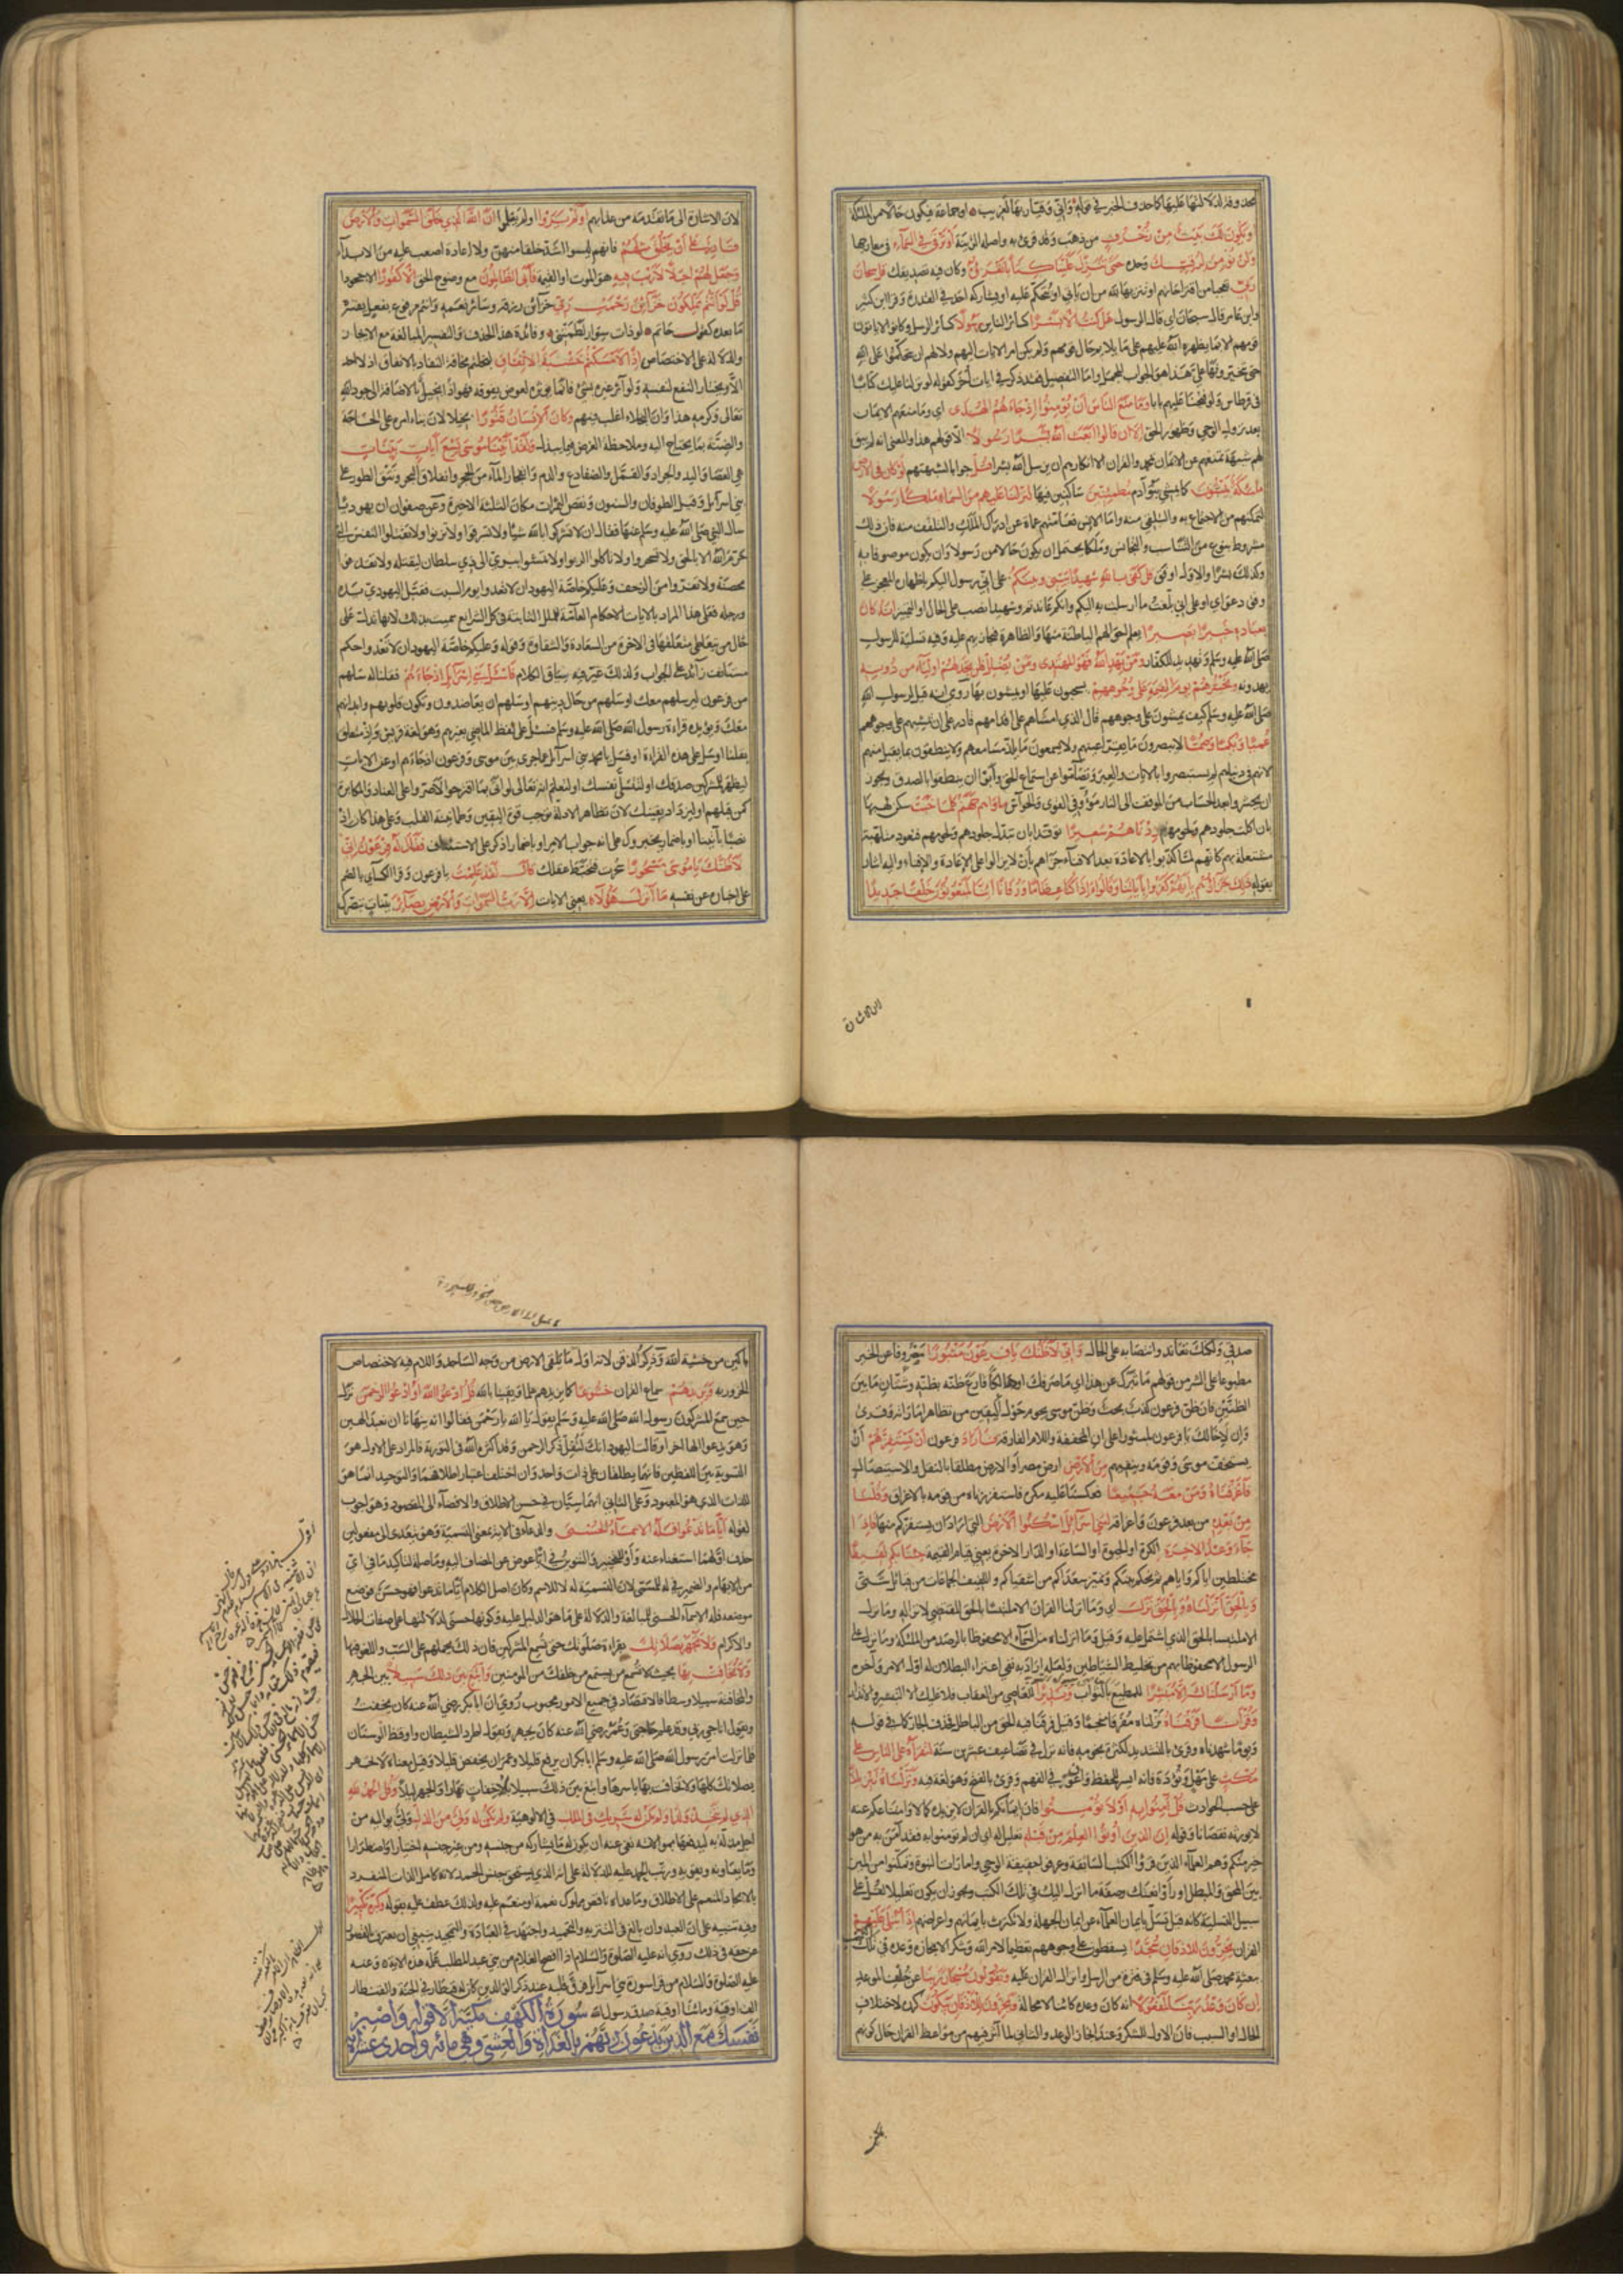 محذوف لدلالتها عليها كما حذف الخبر في قوله فاني وقيار بها لغريب او جماعة فيكون حالا من الملئكة
او يكون لك بيت من زخرف من ذهب وقد قرئ به واصله الزينة او ترقى في السماء في معارجها
ولن نؤمن لرقيك وحده حتى تنزل علينا كتابا نقرؤه وكان فيه تصديقك قل سبحان
ربي تعجبا من اقتراحاتهم او تنزيها لله من ان ياتي او يتحكم عليه او يشاركه احد في القدرة وقرا ابن كثير
وابن عامر قال سبحان اي قال الرسول هل كنت الا بشرا كسائر الناس رسولا كسائر الرسل وكانوا لا ياتون
قومهم الا بما يظهره الله عليهم على ما يلايم حال قومهم ولم يكن امر الايات اليهم ولا لهم ان يتحكموا على الله
حتى تتخيروها علي هذا هو الجواب المجمل واما التفصيل فقد ذكر في ايات اخر كقوله لو نزلنا عليك كتابا
في قرطاس ولو فتحنا عليهم بابا وما منع الناس ان يؤمنوا اذ جاءهم الهدى اي وما منعهم الايمان
بعد نزول الوحي وظهور الحق الا ان قالوا ابعث الله بشرا رسولا الا قولهم هذا والمعنى انه لم يبق
لهم شبهة تمنعهم عن الايمان بمحمد والقران الا انكارهم ان يرسل الله بشرا قل جوابا لشبهتهم لو كان في الارض
ملئكة يمشون كما يمشي بنو آدم مطمئنين ساكنين فيها لنزلنا عليهم من السماء ملكا رسولا
لتمكنهم من الاجتماع به والتلقي منه واما الانس فعامتهم عماة عن ادراك الملك والتلقف منه فان ذلك
مشروط بنوع من التناسب والتجانس وملكا يحتمل ان يكون حالا من رسولا وان يكون موصوفا به
وكذلك بشرا والاول اوفق قل كفى بالله شهيدا بيني وبينكم على اني رسول اليكم باظهار المعجز على
وفق دعواي او على اني بلغت ما ارسلت به اليكم وانكم عاندتم وشهيدا نصب على الحال او التمييز انه كان
بعباده خبيرا بصيرا يعلم احوالهم الباطنة منها والظاهرة فيجازيهم عليه وفيه تسلية للرسول
صلى الله عليه وسلم وتهديد للكفار ومن يهد الله فهو المهتدي ومن يضلل فلن تجد لهم اولياء من دونه
يهدونه ونحشرهم يوم القيمة على وجوههم يسحبون عليها او يمشون بها روي انه قيل لرسول الله
صلى الله عليه وسلم كيف يمشون على وجوههم قال الذي امشاهم على اقدامهم قادر على ان يمشيهم على وجوههم
عميا وبكما وصما لا يبصرون ما يقر اعينهم ولا يسمعون ما يلذ مسامعهم ولا ينطقون بما يقبل منهم
لانهم في دنياهم لم يستبصروا بالايات والعبر وتصاموا عن استماع الحق وابوا ان ينطقوا بالصدق ويجوز
ان يحشروا بعد الحساب من الموقف الى النار موفي القوى والحواس ماواهم جهنم كلما خبت سكن لهبها
بان اكلت جلودهم ولحومهم زدناهم سعيرا توقدا بان تبدل جلودهم ولحومهم فتعود ملتهبة
مشتعلة بهم كانهم لما كذبوا بالاعادة بعد الافناء جزاهم بان لا يزالوا على الاعادة والافناء واليه اشار
بقوله ذلك جزاؤهم بانهم كفروا باياتنا وقالوا ءاذا كنا عظاما ورفاتا ءانا لمبعوثون خلقا جديدا
لان الاشارة
لان الاشارة الى ما تقدمه من عذابهم اولم يروا اولم يعلموا ان الله الذي خلق السموات والارض
قادر على ان يخلق مثلهم فانهم ليسوا اشد خلقا منهن ولا الاعادة اصعب عليه من الابداء
وجعل لهم اجلا لا ريب فيه هو الموت او القيمة فابى الظالمون مع وضوح الحق الا كفورا الا جحودا
قل لو انتم تملكون خزائن رحمة ربي خزائن رزقه وسائر نعمه وانتم مرفوع بفعل يفسره
ما بعده كقول حاتم لو ذات سوار لطمتني وفائدة هذا الحذف والتفسير المبالغة مع الايجاز
والدلالة على الاختصاص اذا لامسكتم خشية الانفاق لبخلتم مخافة النفاد بالانفاق اذ لا احد
الا ويختار النفع لنفسه ولو آثر غيره بشئ فانما يؤثره لعوض يفوقه فهو اذا بخيل بالاضافة الى جود الله
تعالى وكرمه هذا وان البخلاء اغلب فيهم وكان الانسان قتورا بخيلا لان بناء امره على الحاجة
والضنة بما يحتاج اليه وملاحظة العوض فيما يبذل ولقد آتينا موسى تسع آيات بينات
هي العصا واليد والجراد والقمل والضفادع والدم وانفجار الماء من الحجر وانفلاق البحر ونتق الطور على
بني اسرائيل وقيل الطوفان والسنون ونقص الثمرات مكان الثلثة الاخيرة وعن صفوان ان يهوديا
سال النبي صلى الله عليه وسلم عنها فقال ان لا تشركوا بالله شيئا ولا تسرقوا ولا تزنوا ولا تقتلوا النفس التي
حرم الله الا بالحق ولا تسحروا ولا تاكلوا الربوا ولا تمشوا ببرئ الى ذي سلطان ليقتله ولا تقذفوا
محصنة ولا تفروا من الزحف وعليكم خاصة اليهود ان لا تعدوا يوم السبت فقبل اليهودي يده
ورجله فعلى هذا المراد بالايات الاحكام العامة للملل الثابتة في كل الشرائع سميت بذلك لانها تدل على
حال من يتعاطى متعلقها في الاخرة من السعادة والشقاوة وقوله وعليكم خاصة اليهود ان لا تعدوا حكم
مستانف زائد على الجواب ولذلك غير فيه سياق الكلام فاسئل بني اسرآئيل اذ جاءهم فقلنا له سلهم
من فرعون ليرسلهم معك او سلهم عن حال دينهم او سلهم ان يعاضدوك وتكون قلوبهم وايديهم
معك ويؤيده قراءة رسول الله صلى الله عليه وسلم فسال على لفظ الماضي بغير همز وهو لغة قريش واذ متعلق
بقلنا او سال على هذه القراءة او فسل يا محمد بني اسرآئيل عما جرى بين موسى وفرعون اذ جاءهم او عن الايات
ليظهر للمشركين صدقك او لتتسلى نفسك او لتعلم انه تعالى لو اتى بما اقترحوا لاصروا على العناد والمكابرة
كمن قبلهم او ليزداد يقينك لان تظاهر الادلة يوجب قوة اليقين وطمانينة القلب وعلى هذا كان اذ
نصبا بآتينا او باضمار يخبروك على انه جواب الامر او باضمار اذكر على الاستئناف فقال له فرعون اني
لاظنك يا موسى مسحورا سحرت فتخبط عقلك قال لقد علمت يا فرعون وقرا الكسائي بالضم
على اخباره عن نفسه ما انزل هؤلاء يعني الايات الا رب السموات والارض بصائر بينات تبصرك
صدقي ولكنك تعاند وانتصابه على الحال واني لاظنك يا فرعون مثبورا مصروفا عن الخير
مطبوعا على الشر من قولهم ما ثبرك عن هذا اي ما صرفك او هالكا قارع ظنه بظنه وشتان ما بين
الظنين فان ظن فرعون كذب بحت وظن موسى يحوم حول اليقين من تظاهر اماراته وقرئ
وان لاخالك يا فرعون لمثبورا على ان المخففة واللام الفارقة فاراد فرعون ان يستفزهم ان
يستخف موسى وقومه وينفيهم من الارض ارض مصر او الارض مطلقا بالقتل والاستيصال
فاغرقناه ومن معه جميعا فعكسنا عليه مكره فاستفززناه وقومه بالاغراق وقلنا
من بعده من بعد فرعون واغراقه لبني اسرآئيل اسكنوا الارض التي اراد ان يستفزكم منها فاذا
جاء وعد الاخرة الكرة او الحيوة او الساعة او الدار الاخرة يعني قيام القيمة جئنا بكم لفيفا
مختلطين اياكم واياهم ثم نحكم بينكم ونميز سعداكم من اشقياكم واللفيف الجماعات من قبائل شتى
وبالحق انزلناه وبالحق نزل اي وما انزلنا القران الا ملتبسا بالحق المقتضي لانزاله وما نزل
الا ملتبسا بالحق الذي اشتمل عليه وقيل وما انزلناه من السماء الا محفوظا بالرصد من الملئكة وما نزل على
الرسول الا محفوظا بهم من تخليط الشياطين ولعله اراد به نفي اعتراء البطلان له اول الامر وآخره
وما ارسلناك الا مبشرا للمطيع بالثواب ونذيرا للعاصي من العقاب فلا عليك الا التبشير والانذار
وقرآنا فرقناه نزلناه مفرقا منجما وقيل فرقنا فيه الحق من الباطل فحذف الجار كما في قوله
ويوما شهدناه وقرئ بالتشديد لكثرة نجومه فانه نزل في تضاعيف عشرين سنة لتقرأه على الناس على
مكث على مهل وتؤدة فانه ايسر للحفظ واعون في الفهم وقرئ بالفتح وهو لغة فيه ونزلناه تنزيلا
على حسب الحوادث قل آمنوا به او لا تؤمنوا فان ايمانكم بالقران لا يزيده كمالا وامتناعكم عنه
لا يورثه نقصانا وقوله ان الذين اوتوا العلم من قبله تعليل له اي ان لم تؤمنوا به فقد آمن به من هو
خير منكم وهم العلماء الذين قرؤا الكتب السابقة وعرفوا حقيقة الوحي وامارات النبوة وتمكنوا من الميز
بين المحق والمبطل او راوا نعتك وصفة ما انزل اليك في تلك الكتب ويجوز ان يكون تعليلا لقل على
سبيل التسلية كانه قيل تسل بايمان العلماء عن ايمان الجهلة ولا تكترث بايمانهم واعراضهم اذا يتلى عليهم
القران يخرون للاذقان سجدا يسقطون على وجوههم تعظيما لامر الله وشكرا لانجازه وعده في تلك الكتب
ببعثة محمد صلى الله عليه وسلم على فترة من الرسل وانزال القران عليه ويقولون سبحان ربنا عن خلف الموعد
ان كان وعد ربنا لمفعولا انه كان وعده كائنا لا محالة ويخرون للاذقان يبكون كرره لاختلاف
الحال او السبب فان الاول للشكر عند انجاز الوعد والثاني لما اثر فيهم من مواعظ القران حال كونهم
باكين من خشية الله وذكر الذقن لانه اول ما يلقى الارض من وجه الساجد واللام فيه لاختصاص
الخرور به ويزيدهم سماع القران خشوعا كما يزيدهم علما ويقينا بالله قل ادعوا الله او ادعوا الرحمن نزلت
حين سمع المشركون رسول الله صلى الله عليه وسلم يقول يا الله يا رحمن فقالوا انه ينهانا ان نعبد الهين
وهو يدعو الها اخر او قالت اليهود انك لتقل ذكر الرحمن وقد اكثره الله في التورية فالمراد على الاول هو
التسوية بين اللفظين فانهما يطلقان على ذات واحد وان اختلف اعتبار اطلاقهما والتوحيد انما هو
للذات الذي هو المعبود وعلى الثاني انهما سيان في حسن الاطلاق والافضاء الى المقصود وهو اجوب
لقوله ايا ما تدعوا فله الاسماء الحسنى والدعاء في الاية بمعنى التسمية وهو يتعدى الى مفعولين
حذف اولهما استغناء عنه واو للتخيير والتنوين في ايا عوض عن المضاف اليه وما صلة لتاكيد ما في اي
من الابهام والضمير في له للمسمى لان التسمية له لا للاسم وكان اصل الكلام ايا ما تدعوا فهو حسن فوضع
موضعه فله الاسماء الحسنى للمبالغة والدلالة على ما هو الدليل عليه وكونها حسنى لدلالتها على صفات الجلال
والاكرام ولا تجهر بصلاتك بقراءة صلوتك حتى تسمع المشركين فان ذلك يحملهم على السب واللغو فيها
ولا تخافت بها بحيث لا تسمع من خلفك من المؤمنين وابتغ بين ذلك سبيلا بين الجهر
والمخافتة سبيلا وسطا فالاقتصاد في جميع الامور محبوب روي ان ابا بكر رضي الله عنه كان يخفت
ويقول اناجي ربي وقد علم حاجتي وعمر رضي الله عنه كان يجهر ويقول اطرد الشيطان واوقظ الوسنان
فلما نزلت امر رسول الله صلى الله عليه وسلم ابا بكر ان يرفع قليلا وعمر ان يخفض قليلا وقيل معناه لا تجهر
بصلاتك كلها ولا تخافت بها باسرها وابتغ بين ذلك سبيلا بالاخفات نهارا والجهر ليلا وقل الحمد لله
الذي لم يتخذ ولدا ولم يكن له شريك في الملك في الالوهية ولم يكن له ولي من الذل ولي يواليه من
اجل مذلة به ليدفعها بموالاته نفى عنه ان يكون له ما يشاركه من جنسه ومن غير جنسه اختيارا واضطرارا
وما يعاونه ويقويه ورتب الحمد عليه للدلالة على انه الذي يستحق جنس الحمد لانه كامل الذات المنفرد
بالايجاد المنعم على الاطلاق وما عداه ناقص مملوك نعمة او منعم عليه ولذلك عطف عليه بقوله وكبره تكبيرا
وفيه تنبيه على ان العبد وان بالغ في التنزيه والتحميد واجتهد في العبادة والتمجيد ينبغي ان يعترف بالقصور
عن حقه في ذلك روي انه عليه الصلوة والسلام اذا افصح الغلام من بني عبد المطلب علمه هذه الاية وعنه
عليه الصلوة والسلام من قرا سورة بني اسرآئيل فرق قلبه عند ذكر الوالدين كان له قنطار في الجنة والقنطار
الف اوقية ومائتا اوقية صدق رسول الله سورة الكهف مكية الا قوله واصبر
نفسك مع الذين يدعون ربهم بالغداة والعشي وهي مائه واحدى عشر آية